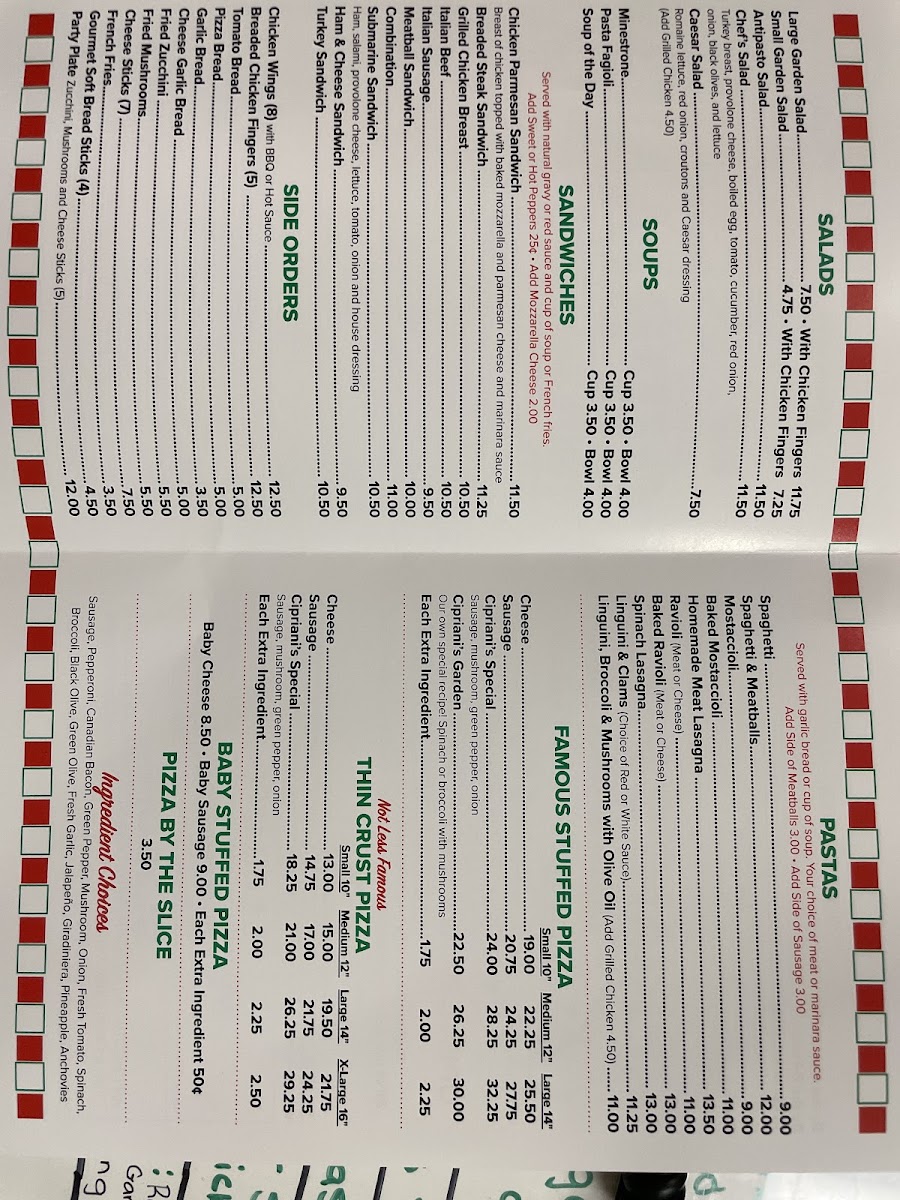 SALADS
Large Garden Salad 7.50 • With Chicken Fingers 11.75
Small Garden Salad 4.75 • With Chicken Fingers 7.25
Antipasto Salad 11.50
Chef's Salad 11.50
Turkey breast, provolone cheese, boiled egg, tomato, cucumber, red onion,
onion, black olives, and lettuce
Caesar Salad 7.50
Romaine lettuce, red onion, croutons and Caesar dressing
(Add Grilled Chicken 4.50)
SOUPS
Minestrone Cup 3.50 • Bowl 4.00
Pasta Fagioli Cup 3.50 • Bowl 4.00
Soup of the Day Cup 3.50 • Bowl 4.00
SANDWICHES
Served with natural gravy or red sauce and cup of soup or French fries.
Add Sweet or Hot Peppers 25¢ • Add Mozzarella Cheese 2.00
Chicken Parmesan Sandwich 11.50
Breast of chicken topped with baked mozzarella and parmesan cheese and marinara sauce
Breaded Steak Sandwich 11.25
Grilled Chicken Breast 10.50
Italian Beef 10.50
Italian Sausage 9.50
Meatball Sandwich 10.00
Combination 11.00
Submarine Sandwich 10.50
Ham, salami, provolone cheese, lettuce, tomato, onion and house dressing
Ham & Cheese Sandwich 9.50
Turkey Sandwich 10.50
SIDE ORDERS
Chicken Wings (8) with BBQ or Hot Sauce 12.50
Breaded Chicken Fingers (5) 12.50
Tomato Bread 5.00
Pizza Bread 5.00
Garlic Bread 3.50
Cheese Garlic Bread 5.00
Fried Zucchini 5.50
Fried Mushrooms 5.50
Cheese Sticks (7) 7.50
French Fries 3.50
Gourmet Soft Bread Sticks (4) 4.50
Party Plate Zucchini, Mushrooms and Cheese Sticks (5) 12.00
PASTAS
Served with garlic bread or cup of soup. Your choice of meat or marinara sauce.
Add Side of Meatballs 3.00 • Add Side of Sausage 3.00
Spaghetti 9.00
Spaghetti & Meatballs 12.00
Mostaccioli 9.00
Baked Mostaccioli 11.00
Homemade Meat Lasagna 13.50
Ravioli (Meat or Cheese) 11.00
Baked Ravioli (Meat or Cheese) 13.00
Spinach Lasagna 13.00
Linguini & Clams (Choice of Red or White Sauce) 11.25
Linguini, Broccoli & Mushrooms with Olive Oil (Add Grilled Chicken 4.50) 11.00
FAMOUS STUFFED PIZZA
Small 10" Medium 12" Large 14"
Cheese 19.00 22.25 25.50
Sausage 20.75 24.25 27.75
Cipriani's Special 24.00 28.25 32.25
Sausage, mushroom, green pepper, onion
Cipriani's Garden 22.50 26.25 30.00
Our own special recipe! Spinach or broccoli with mushrooms
Each Extra Ingredient 1.75 2.00 2.25
Not Less Famous
THIN CRUST PIZZA
Small 10" Medium 12" Large 14" X-Large 16"
Cheese 13.00 15.00 19.50 21.75
Sausage 14.75 17.00 21.75 24.25
Cipriani's Special 18.25 21.00 26.25 29.25
Sausage, mushroom, green pepper, onion
Each Extra Ingredient 1.75 2.00 2.25 2.50
BABY STUFFED PIZZA
Baby Cheese 8.50 • Baby Sausage 9.00 • Each Extra Ingredient 50¢
PIZZA BY THE SLICE
3.50
Ingredient Choices
Sausage, Pepperoni, Canadian Bacon, Green Pepper, Mushroom, Onion, Fresh Tomato, Spinach,
Broccoli, Black Olive, Green Olive, Fresh Garlic, Jalapeño, Giradiniera, Pineapple, Anchovies